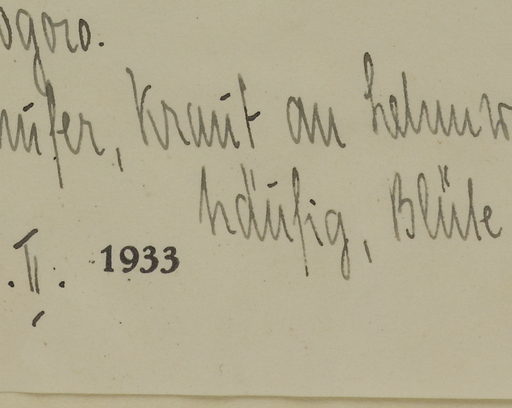 ogoro.
ufer, Kraut an Lehmw
häufig, Blüte
. II. 1933